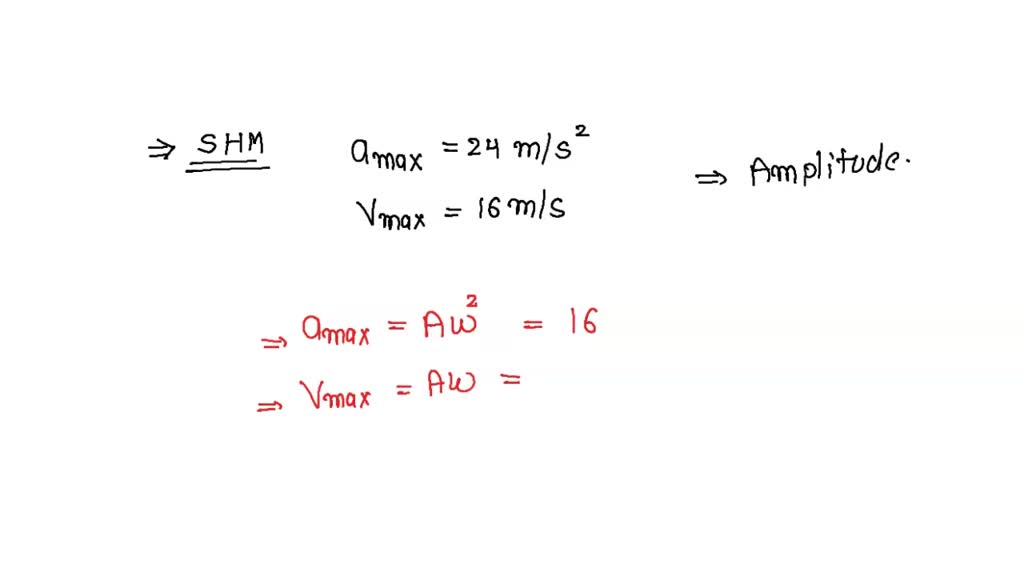 ⇒ SHM a_max = 24 m/s² ⇒ Amplitude.
V_max = 16 m/s
⇒ a_max = Aω² = 16
⇒ V_max = Aω =